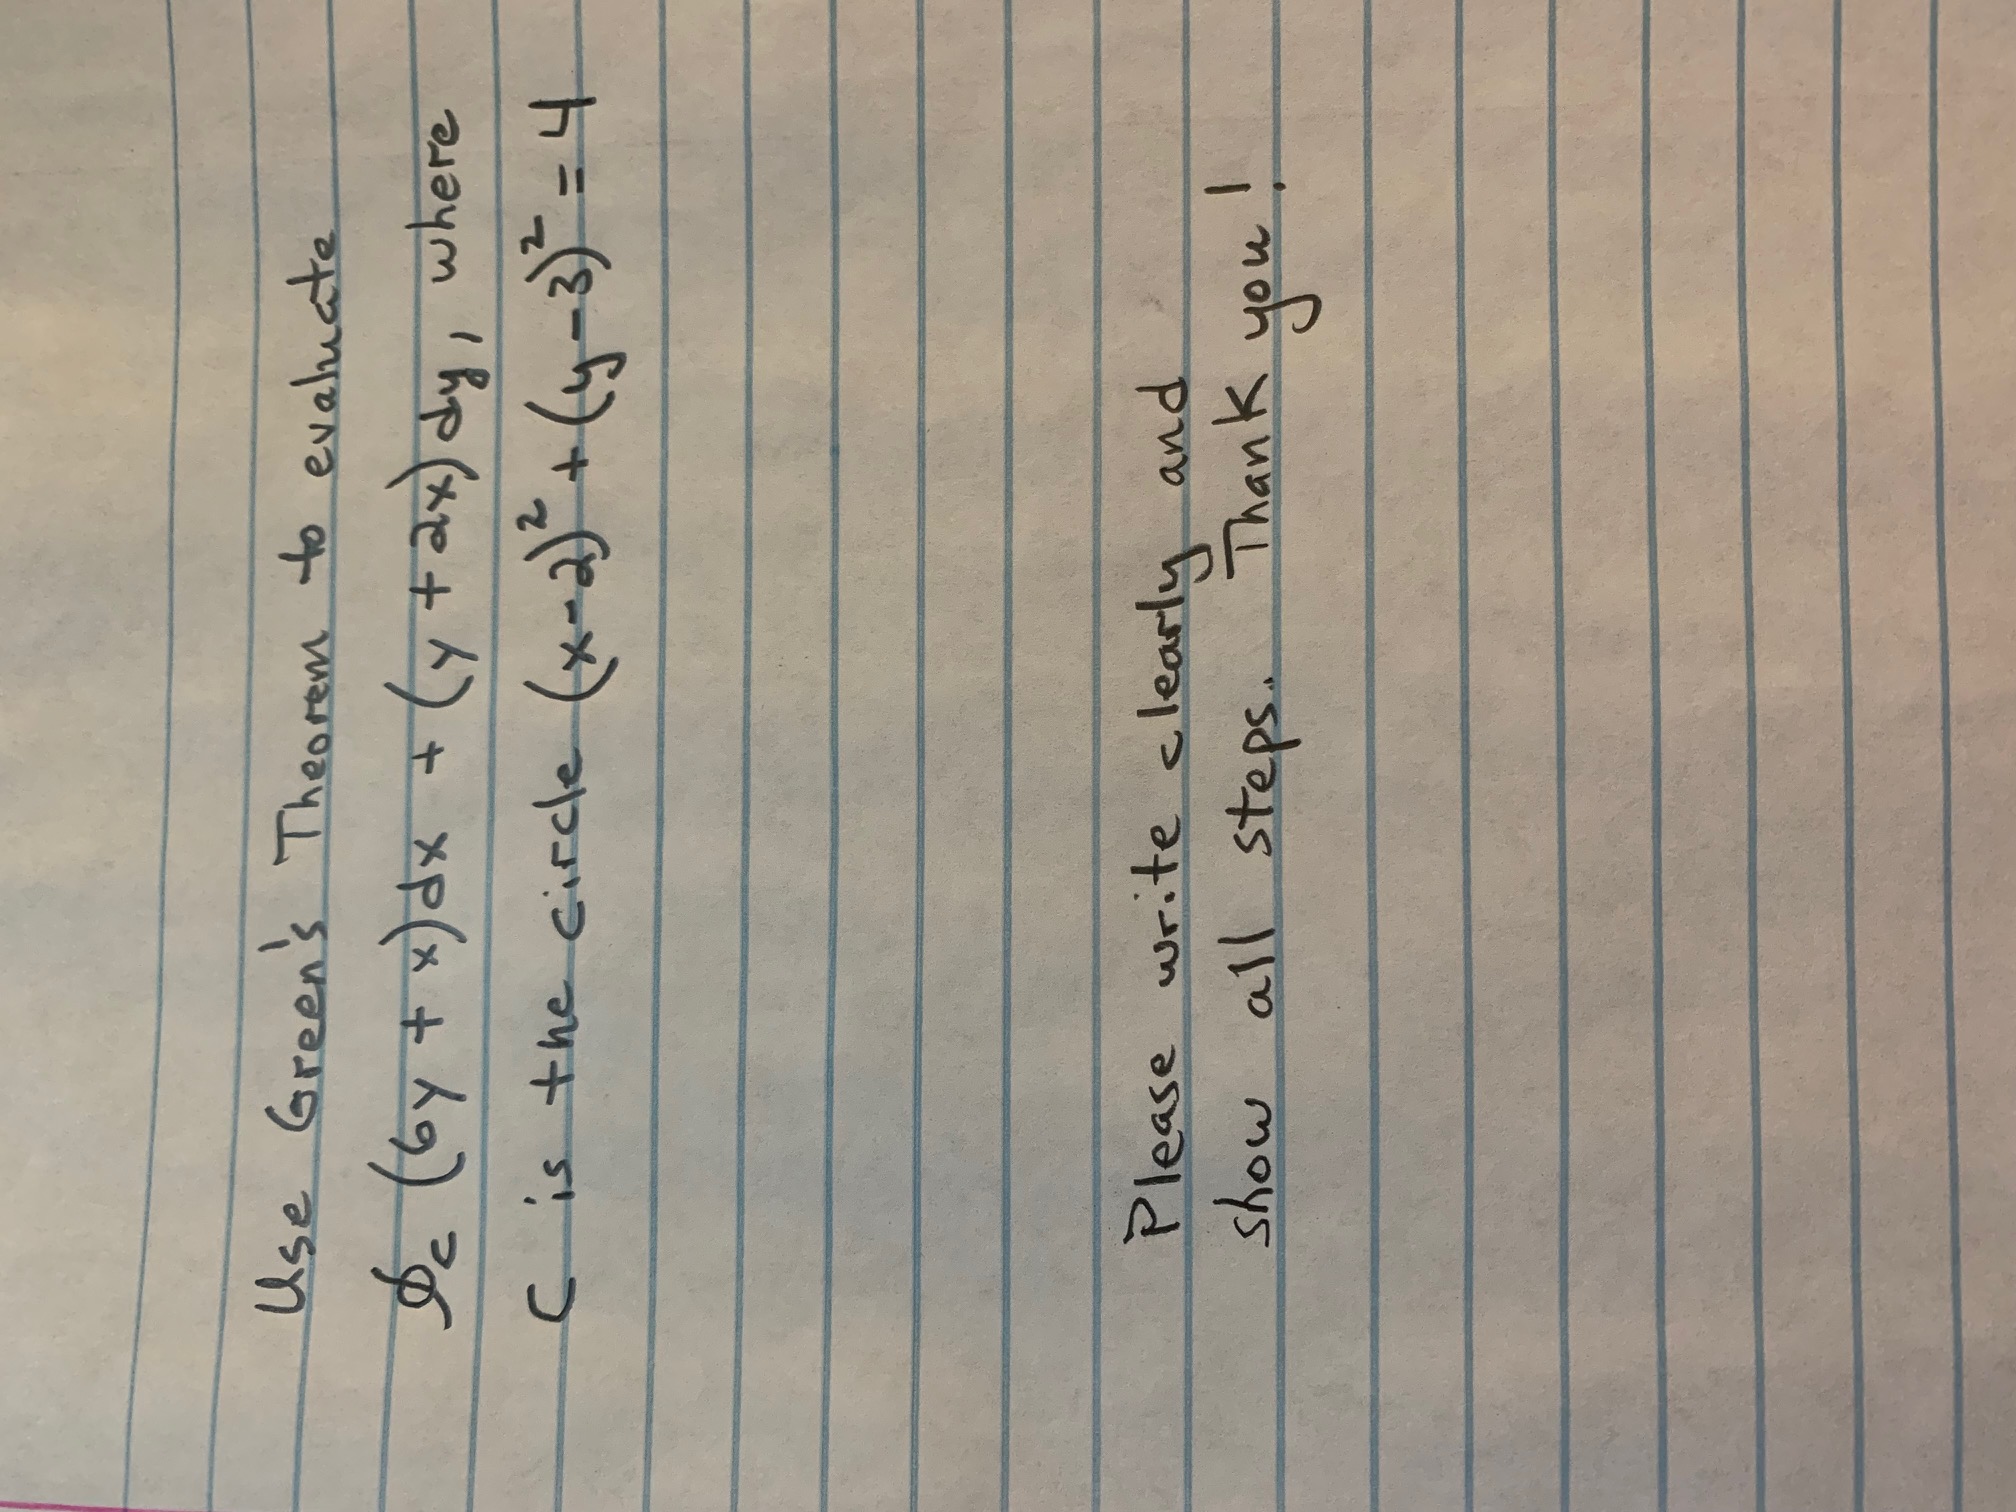 Use Green's Theorem to evaluate
∮c (6y + x)dx + (y + 2x)dy, where
C is the circle (x-2)² + (y-3)² = 4
Please write clearly and
show all steps. Thank you!